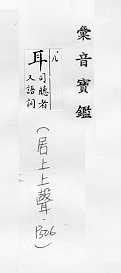 彙音寶鑑
·八
耳
司聽者
又語詞
(居上上聲·P306)